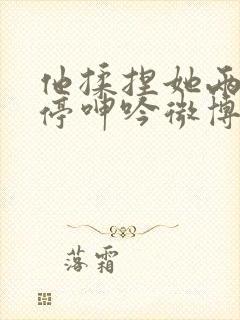 他揉捏她两
停呻吟微博
落霜